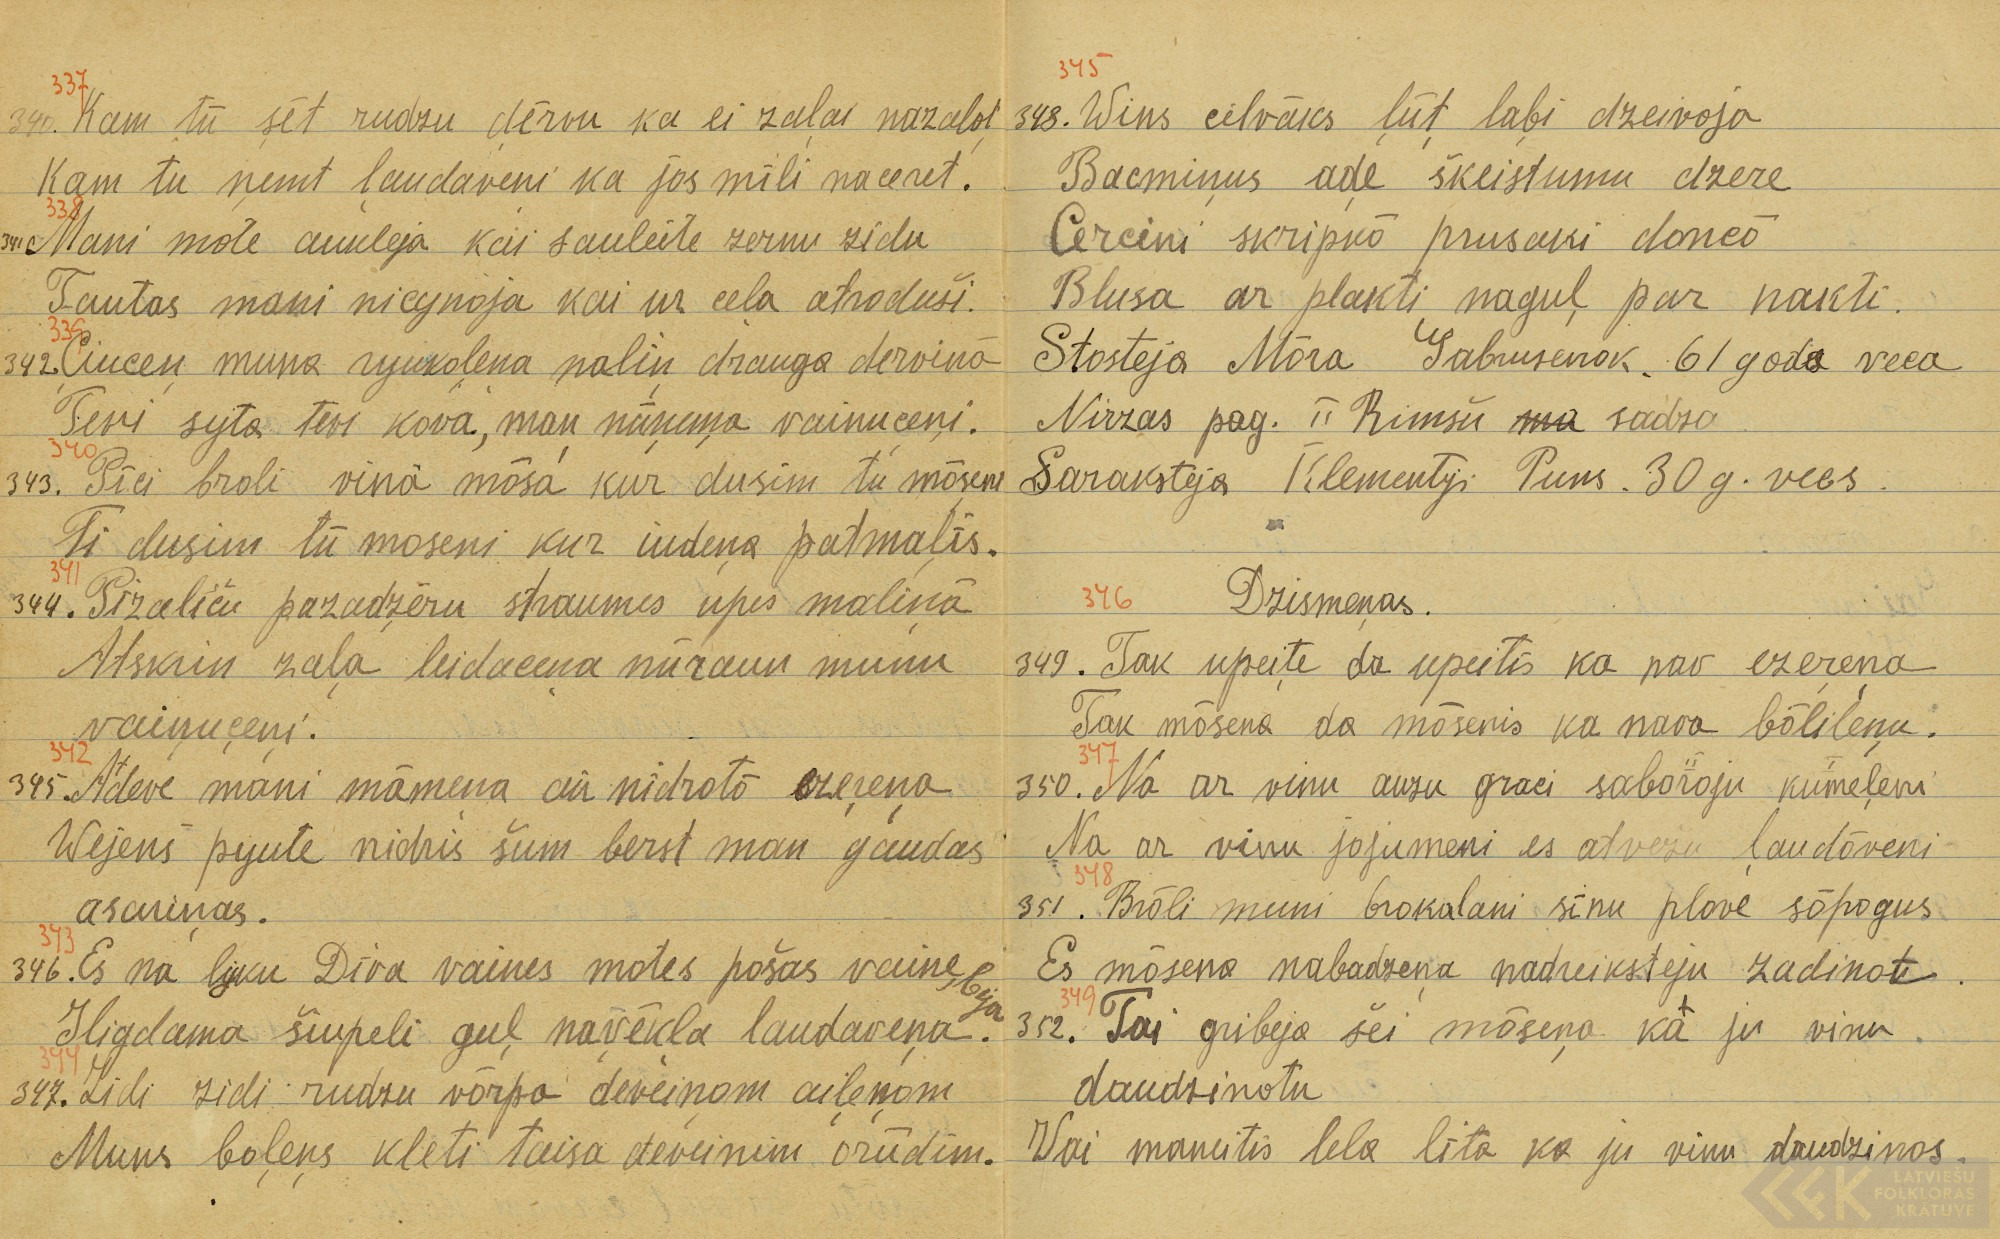 337
340. Kam tū sēt rudzu dērvu ka ei zaļai nazaļot
Kam tu ņemt ļaudaveņi ka jos mīli naceret.
338
341. Mani mote auuleja kai sauleite zernu zidu
Tautas mani nicynoja kai ur cela atroduši.
339
342. Ciucen muna ryukoļeņa nalin drauga dervinā
Tevi syta tevi kova, maņ nūņema vaiņuceņi.
340
343. Pīci broli vinā mōsa kur dusim tū mōseņi
Ti dusim tū moseni kur iudeņa patmalīs.
341
344. Pīzalīču pazadzēru straumes upes maliņā
Atskrin zaļa leidaceņa nūraun munu
vaiņuceņi.
342
345. Atdeve mani māmeņa aiz nīdrotō ezereņa
Wejeņš pyute nidris šum berst man gaudas
asariņas.
343
346. Es na lyku Diva vaines motes pošas vaine bija
Iligdama šiupeli guļ navēkla laudaveņa.
344
347. Zidi zidi rudzu vōrpa deveiņom aiļeņom
Muns boļeņs kleti taisa deveinim oriūdim.
345
348. Wins cilvāks ļūt ļabi dzeivoja
Bacmiņus ade škeistumu dzere
Cerceni skripkō prusaki doncō
Blusa ar plakti naguļ par nakti.
Stosteja Mōra Gabrusenok. 61 goda veca
Nirzas pag. II Rimšū sadza
Saraksteja Klementijs Puns. 30 g. vecs.
346 Dzismeņas.
349. Tak upeite da upeitis ka nav ezereņa
Tak mōseņa da mōsenis ka nava bōlileņu.
347
350. Na ar vinu auzu graci saboroju kumeļeņi
Na ar vinu jojumeni es atvezu ļaudōveni
348
351. Brōli muni brokalani sīnu plove sōpogus
Es mōseņa nabadzeņa nadreiksteju zadinot.
349
352. Tai gribeja šei mōseņa kat ju vinu
daudzinotu
Vai maneitis lela lita ka ju vinu daudzinos.
LATVIEŠU
FOLKLORAS
KRĀTUVE